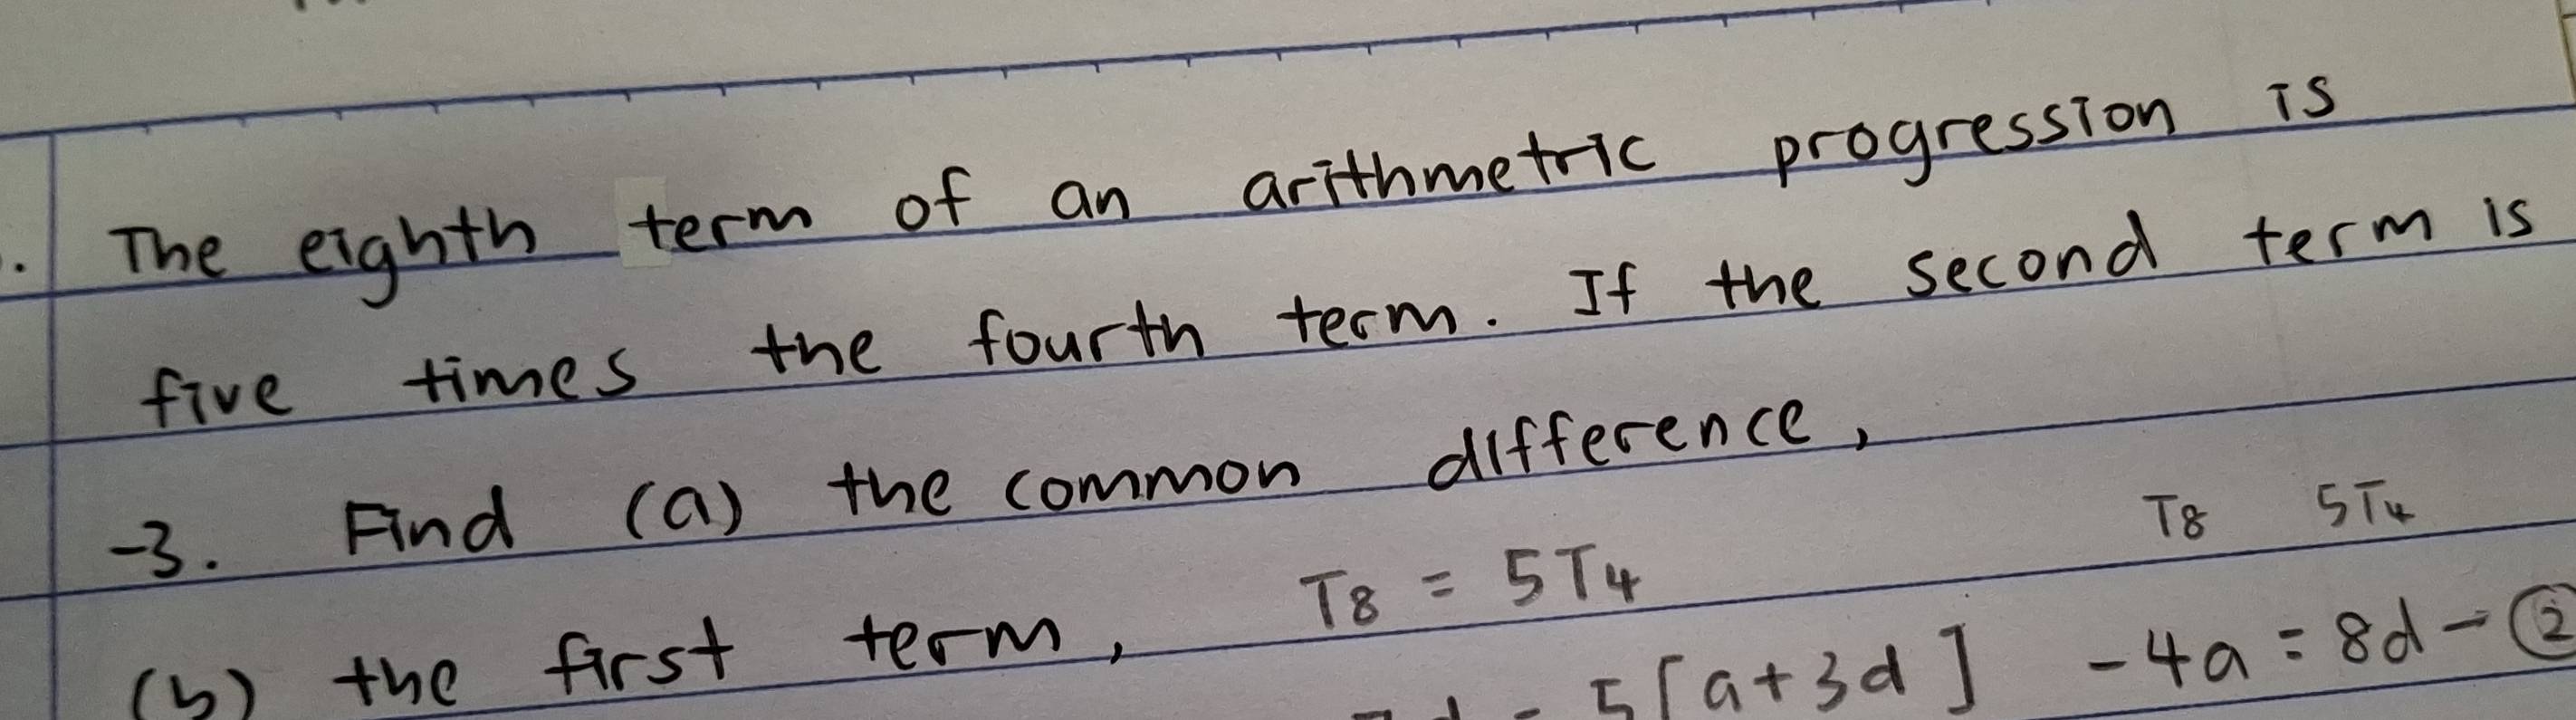 The eighth term of an arithmetric progression is
five times the fourth term. If the second term is
-3. Find (a) the common difference,
T8 5T4
(b) the first term, T8 = 5T4
5[a+3d] -4a = 8d - ②